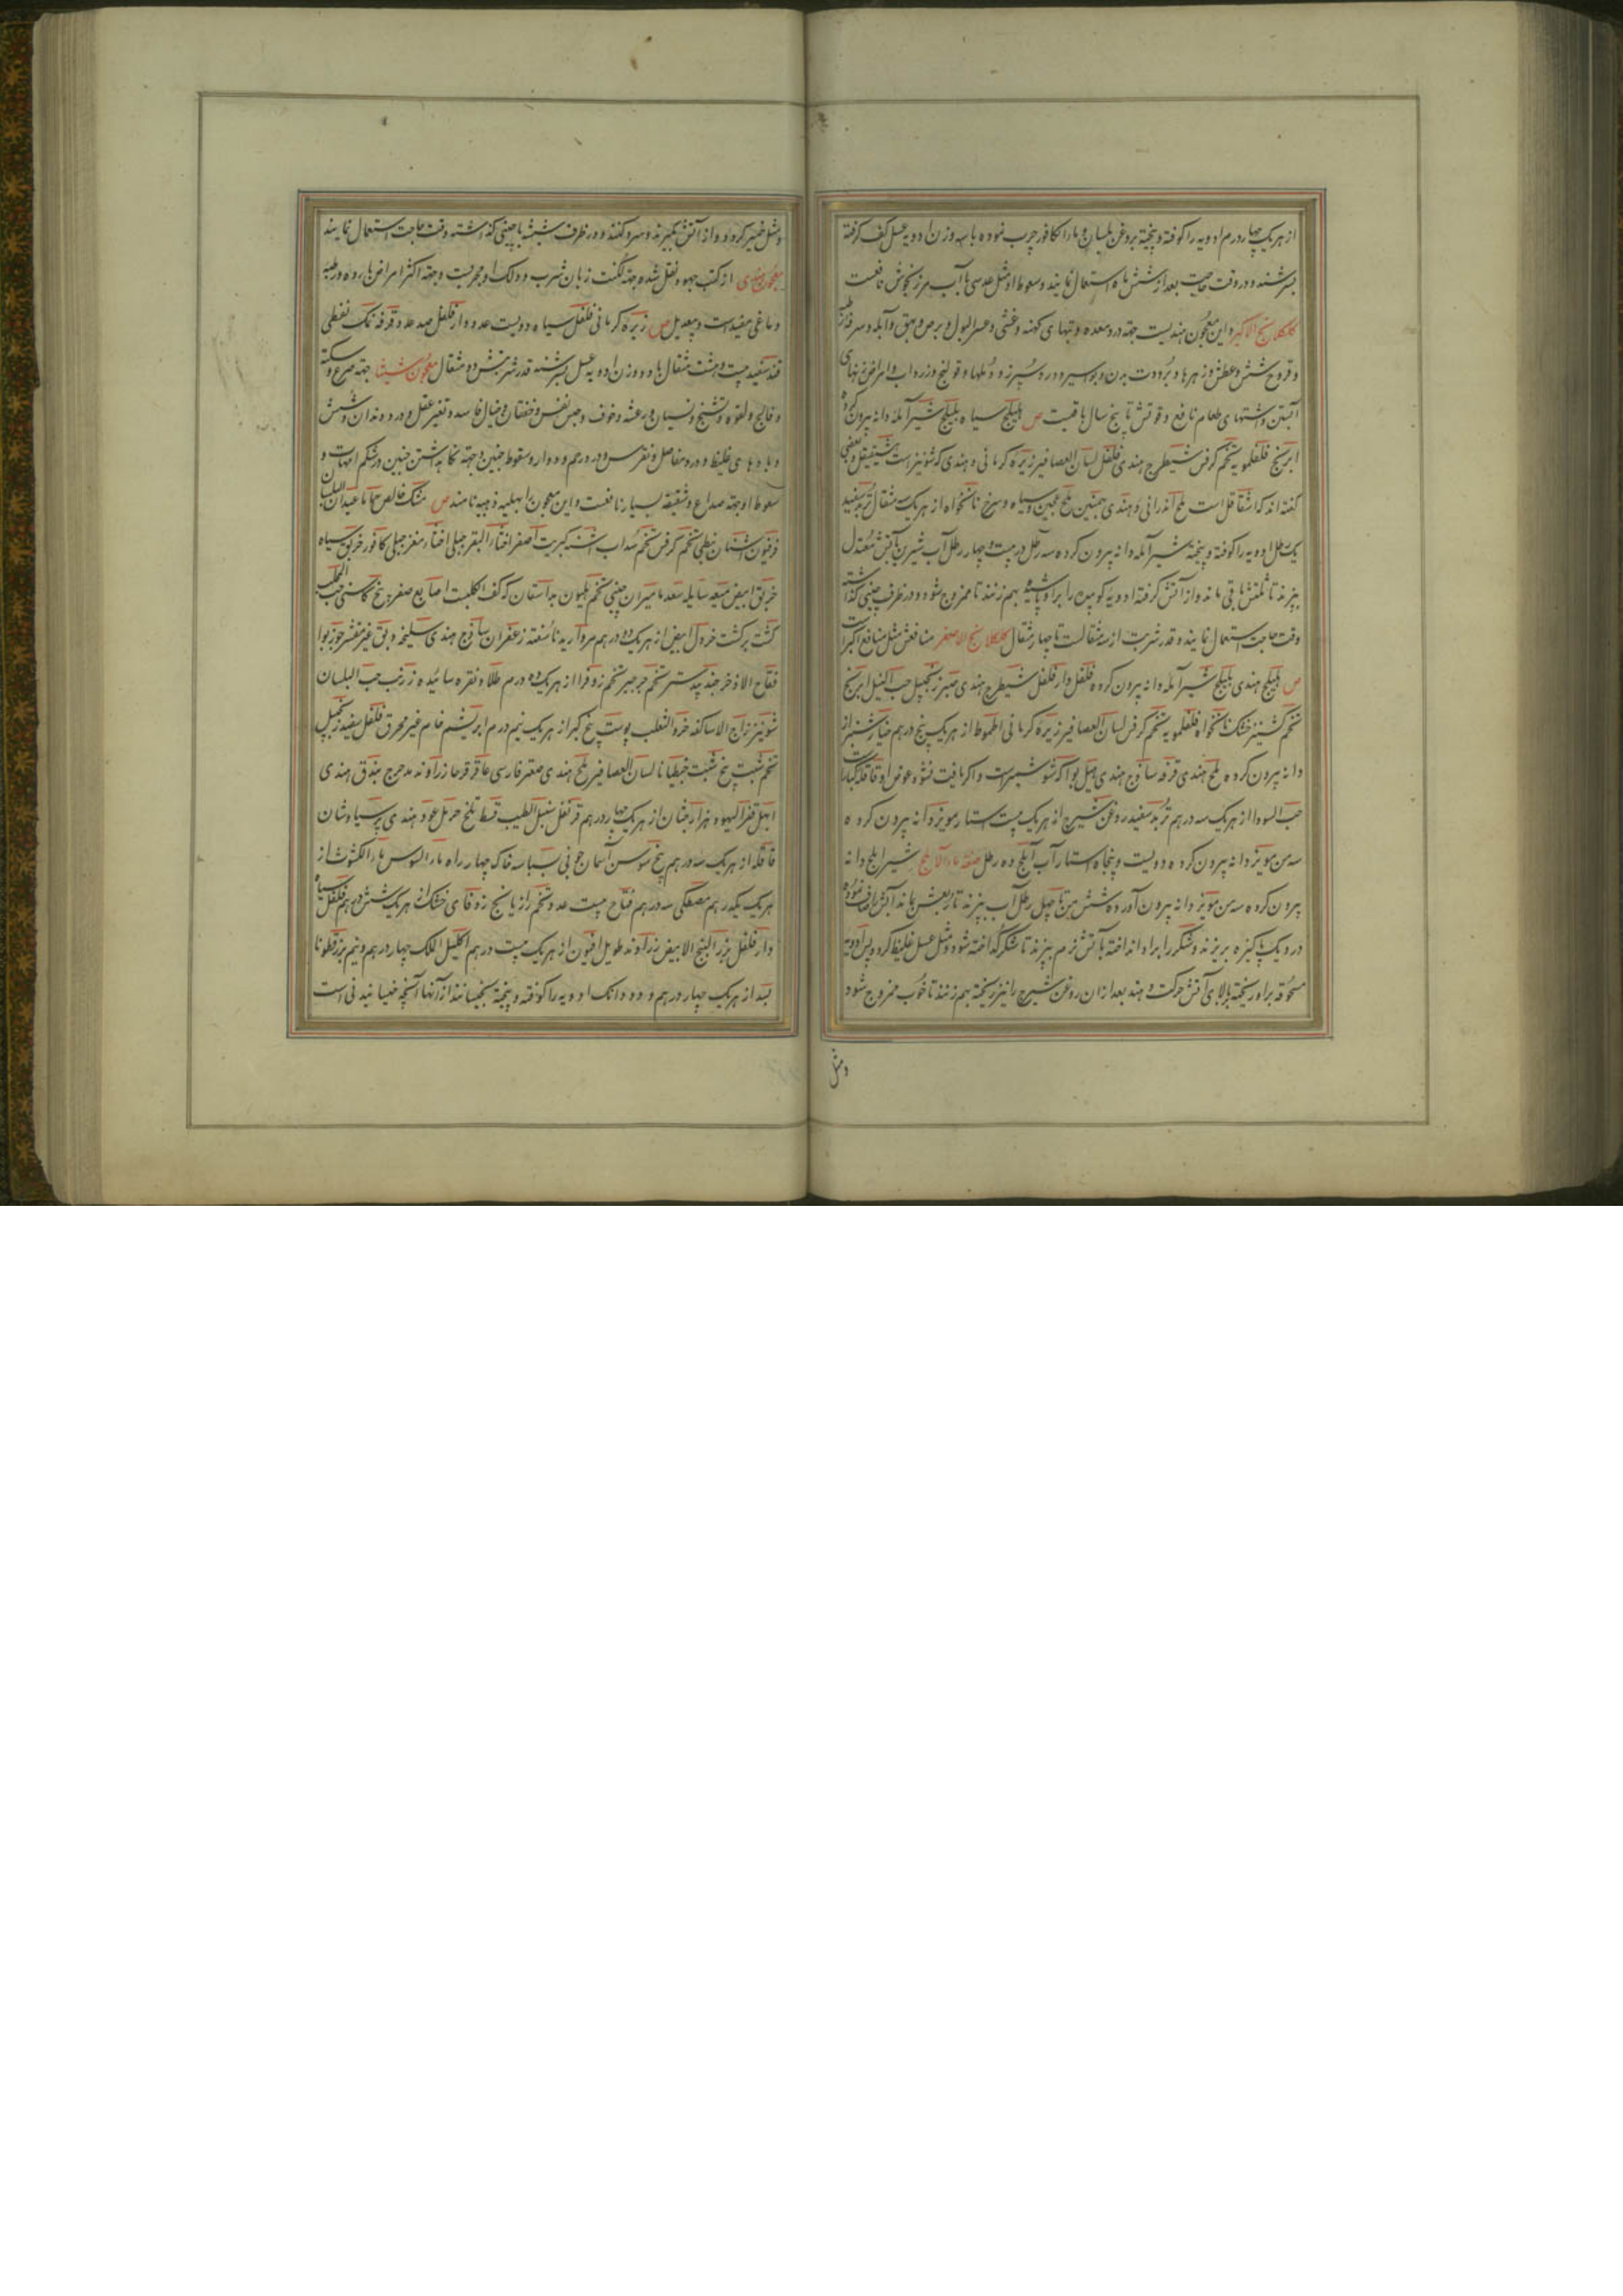 از هریک چهار درم ادویه را کوفته و بیخته بروغن بلسان و ماء الکافور چرب نموده با سه وزن ادویه عسل کف گرفته
بسرشند و در وقت حاجت بعد از شش ماه استعمال نمایند و سعوط او مثل عدسی با آب مرزنجوش نافعست
کلکلانج الاکبر و این معجون هندیست جهة درد معده و تبهای کهنه و غشی و عسر البول و برص و بهق و آکله و سرفه
و قروح شش و عطش و زهرها و برودت بدن و بواسیر و درد سپرز و دملها و قولنج و زرداب و امراض زنهای
آبستن و اشتهای طعام نافع و قوتش تا پنج سال باقیست ص هلیلج سیاه بلیلج شیر آمله دانه بیرون کرده
ابرنج فلفلمویه تخم کرفس شیطرج هندی فلفل لسان العصافیر زیره کرمانی و هندی که شونیز است و بعضی
گفته اند که اشقاقل است ملح اندرانی و هندی همچنین ملح عجین و سیاه و سرخ نانخواه از هریک سه مثقال تربد سفید
یک رطل ادویه را کوفته و بیخته شیر آمله دانه بیرون کرده سه رطل در بیست و چهار رطل آب شیرین بآتش معتدل
بپزند تا ثلثش باقی ماند و از آتش گرفته ادویه کوبیده را بر او پاشیده بهم زنند تا ممزوج شود و در ظرف چینی گذاشته
وقت حاجت استعمال نمایند و قدر شربت از سه مثقالست تا چهار مثقال کلکلانج الاصغر منافعش مثل منافع اکبر است
ص هلیلج هندی بلیلج شیر آمله دانه بیرون کرده فلفل دار فلفل شیطرج هندی صبر زنجبیل حب النیل ابرنج
تخم گشنیز خشک نانخواه فلفلمویه تخم کرفس لسان العصافیر زیره کرمانی اطموط از هریک پنج درهم خیار شنبر از
دانه بیرون کرده ملح هندی قرفه ساذج هندی هیل بوا که شوشمیر است و اگر یافت نشود عوض او قاقله کبار
حب السودا از هریک سه درهم تربد سفید روغن شیرج از هریک بیست استار مویز دانه بیرون کرده
سه من مویز دانه بیرون کرده دویست و پنجاه استار آب آملج ده رطل صفة ماء الاملج شیر املج دانه
بیرون کرده سه من مویز دانه بیرون آورده شش من تا چهل رطل آب بپزند تا ربعش بماند آبش صاف نموده
در دیگ پاکیزه بریزند و شکر را بر او انداخته بآتش نرم بپزند تا شکر گداخته شود و مثل عسل غلیظ گردد پس ادویه
مسحوقه بر او ریخته بالای آتش حرکت دهند بعد از آن روغن شیرج را نیز ریخته بهم زنند تا خوب ممزوج شود
و مثل
و مثل خمیر گردد و از آتش بگیرند و سرد کنند و در ظرف شیشه یا چینی گذاشته وقت حاجت استعمال نمایند
معجون هندی از کتب یهود نقل شده جهة لکنت زبان شرب و دلک او مجربست و جهة اکثر امراض بارده و رطبه
دماغی مفیدست و بیعدیل ص زیره کرمانی فلفل سیاه دویست عدد دار فلفل صد عدد قرفه نمک نفطی
قند سفید بیست و هشت مثقال با دو وزن ادویه عسل بسرشند قدر شربتش دو مثقال معجون شیلثا جهة صرع و سکته
و فالج و لقوه و تشنج و نسیان و رعشه و خوف و حبس نفس و خفقان و خیال فاسد و تغیر عقل و درد دندان و شش
و بادهای غلیظ و درد مفاصل و نقرس و درد رحم و دوار و سقوط جنین و جهة نگاه داشتن جنین در شکم امهات و
سعوط او جهة صداع و شقیقه بسیار نافعست و این معجون را هبلیه و هبیه نامند ص مشک خالص حماما عیدان البلسان
فرفیون اشنان نبطی تخم کرفس تخم سداب اشنه کبریت اصفر اخثاء البقر جبلی اخثاء معز جبلی کافور خربق سیاه
خربق ابیض میعه سایله سعد مامیران چینی تخم هلیون بداسقان که کف الکلبست اصابع صفر بیخ کاسنی حب المحلب
کشت برکشت خردل ابیض از هریک دو درهم مروارید ناسفته زعفران ساذج هندی سلیخه دبق غیر مقشر جوزبوا
فقاح الاذخر جندبیدستر تخم جرجیر تخم زوفرا از هریک ده درم طلا و نقره سائیده زرنب حب البلسان
شونیز زاج الاساکفه خرء الثعلب پوست بیخ کبر از هریک نیم درم ابریشم خام غیر محرق فلفل سفید زنجبیل
تخم شبت بیخ شبت جنطیانا لسان العصافیر ملح هندی صعتر فارسی عاقرقرحا زراوند مدحرج بندق هندی
ابهل قفر الیهود هزارجشان از هریک چهار درهم قرنفل سنبل الطیب قسط تلخ حرمل عود هندی پرسیاوشان
قاقله از هریک سه درهم بیخ سوسن آسمان جونی بسباسه خاک چهار راه ماء السوس ماء الکشوث از
هریک یکدرهم مصطکی سه درهم فقاح بیست عدد تخم رازیانج زوفای خشک از هریک شش درهم فلفل سیاه
دار فلفل بزر البنج الابیض زراوند طویل افیون از هریک بیست درهم اکلیل الملک چهار درهم و نیم بزرقطونا
بسد از هریک چهار درهم و دو دانک ادویه را کوفته و بیخته بخیسانند از آنها آنچه خیسانیدنی است